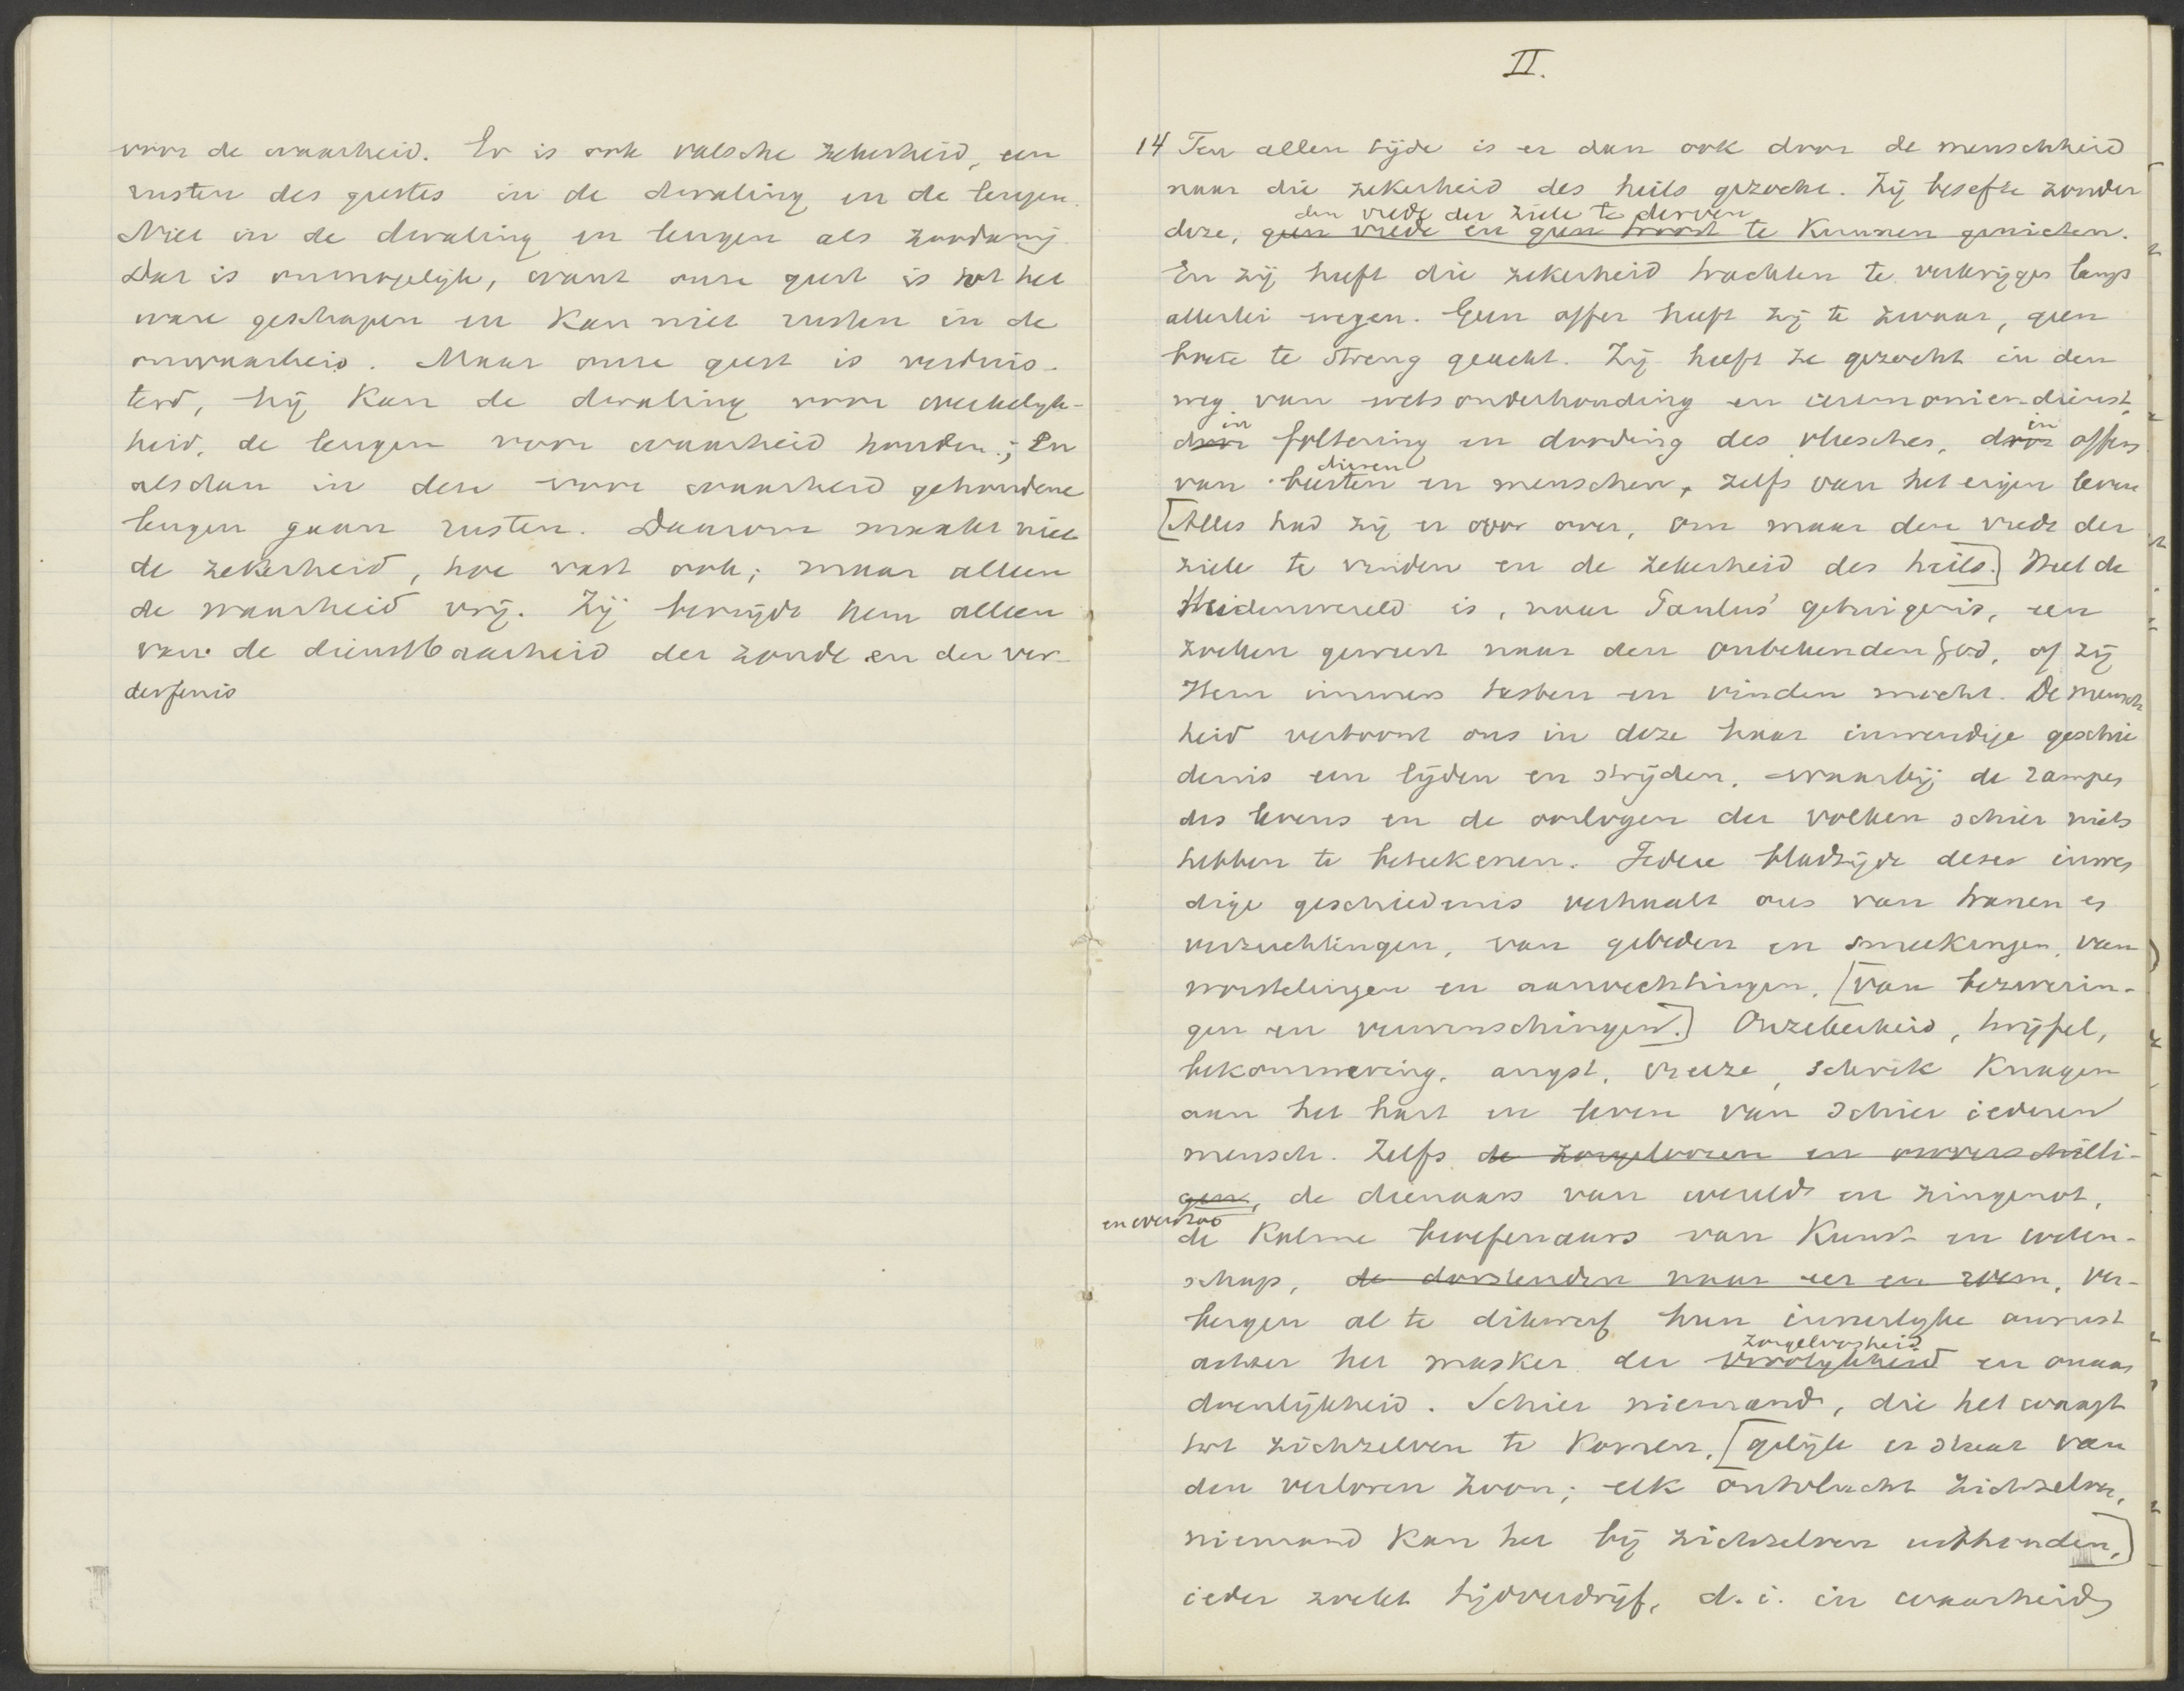 voor de waarheid. Er is ook valsche zekerheid, een
rusten des geestes in de dwaling en de leugen.
Niet in de dwaling en leugen als zoodanig.
Dat is onmogelijk, want onze geest is tot het
ware geschapen en kan niet rusten in de
onwaarheid. Maar onze geest is verduis-
terd, hij kan de dwaling voor werkelijk-
heid, de leugen voor waarheid houden; En
alsdan in deze voor waarheid gehoudene
leugen gaan rusten. Daarom maakt niet
de zekerheid, hoe vast ook; maar alleen
de waarheid vrij. Zij bevrijdt hem alleen
van de dienstbaarheid der zonde en der ver-
derfenis
II.
14 Ten allen tijde is er dan ook door de menschheid
naar die zekerheid des heils gezocht. Zij besefte zonder
den vrede der ziele te derven
deze, geen vrede en geen troost te kunnen genieten.
En zij heeft die zekerheid trachten te verkrijgen langs
allerlei wegen. Geen offer heeft zij te zwaar, geen
boete te streng geacht. Zij heeft ze gezocht in den
weg van wetsonderhouding en ceremoniendienst,
in in
door foltering en dooding des vleesches, door offers
dieren
van beesten en menschen, zelfs van het eigen leven
[Alles had zij er voor over, om maar den vrede der
ziele te vinden en de zekerheid des heils.] Heel de
Heidenwereld is, naar Paulus' getuigenis, een
zoeken geweest naar den onbekenden God, of zij
Hem immers tasten en vinden mocht. De mensch
heid vertoont ons in deze haar inwendige geschie
denis een lijden en strijden, waarbij de rampen
des levens en de oorlogen der volken schier niets
hebben te beteekenen. Iedere bladzijde dezer inwen
dige geschiedenis verhaalt ons van tranen en
verzuchtingen, van gebeden en smeekingen, van
worstelingen en aanvechtingen, [van bezwerin-
gen en verwenschingen.] Onzekerheid, twijfel,
bekommering, angst, vreeze, schrik knagen
aan het hart en leven van schier iederen
mensch. Zelfs de zorgeloozen en onverschilli-
gen, de dienaars van wereld en zingenot,
en evenzoo
de kalme beoefenaars van kunst en weten-
schap, de dorstenden naar eer en roem, ver-
bergen al te dikwerf hun innerlijke onrust
zorgeloosheid
achter het masker der vroolijkheid en onaan
doenlijkheid. Schier niemand, die het waagt
tot zichzelven te komen, [gelijk er staat van
den verloren zoon; elk ontvlucht zichzelven,
niemand kan het bij zichzelven uithouden,]
ieder zoekt tijdverdrijf, d. i. in waarheid